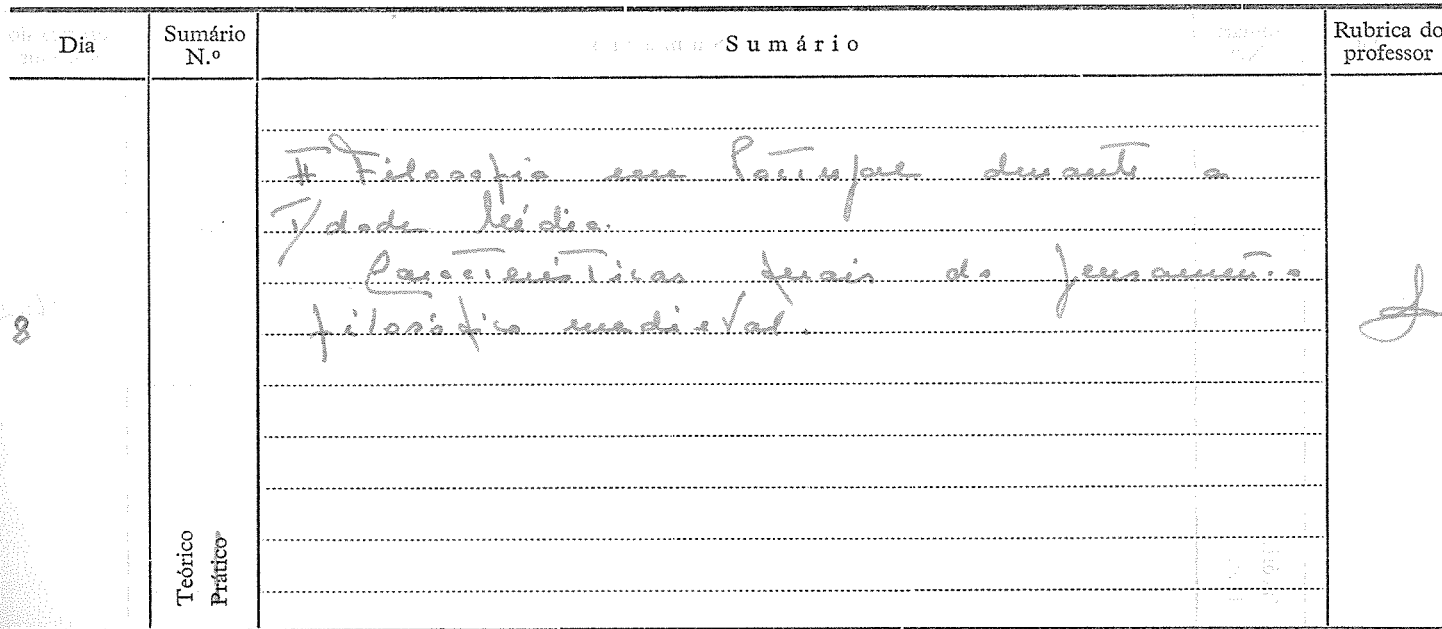 Dia
Sumário N.º
Sumário
Rubrica do professor
A Filosofia em Portugal durante a
Idade Média.
Características gerais do pensamento
filosófico medieval.
8
Teórico
Prático